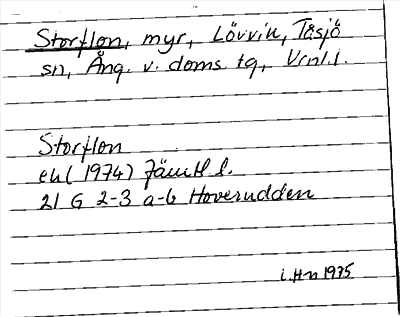 Storflon, myr, Lövvik, Tåsjö
sn, Ång. v. doms. tg, Vrnl. l.
Storflon
ek (1974) Jämtl l.
21 G 2-3 a-b Hoverudden
i. Hn 1975